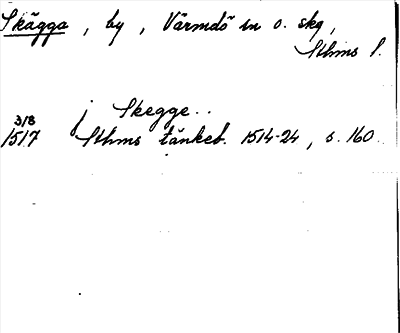 Skägga, by, Värmdö sn o. skg,
Sthms l.
j Skegge..
3/8
1517 Sthms tänkeb. 1514-24, s. 160.